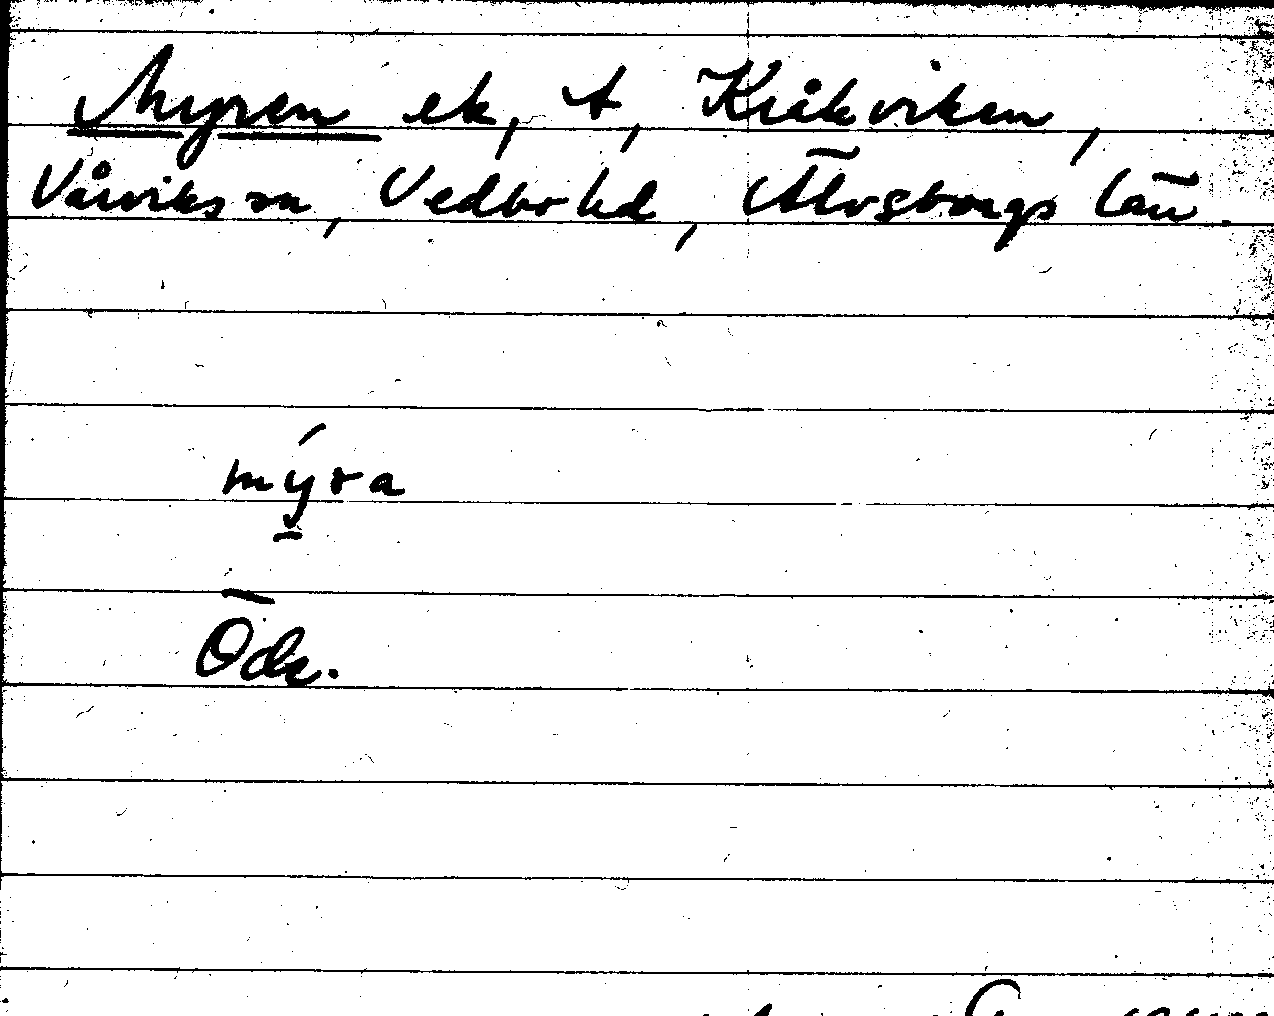 Myren ek, t, Kråkviken,
Vårviks sn, Vedbo hd, Älvsborgs län.
mýra
Öde.